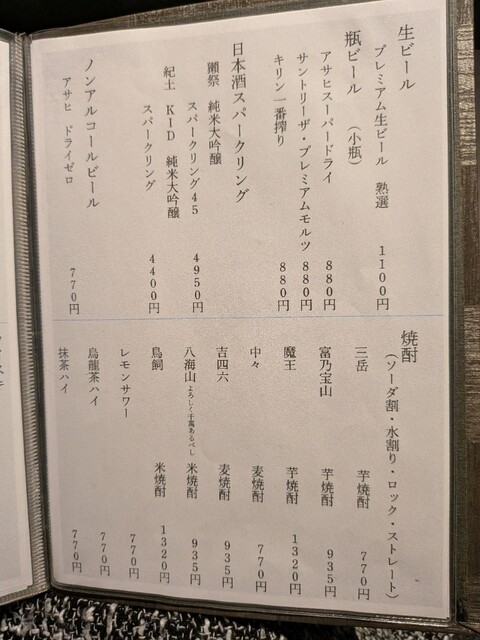 生ビール
プレミアム生ビール 熟選 1100円
瓶ビール (小瓶)
アサヒスーパードライ 880円
サントリーザ・プレミアムモルツ 880円
キリン一番搾り 880円
日本酒スパークリング
獺祭 純米大吟醸
スパークリング45 4950円
紀土 KID 純米大吟醸
スパークリング 4400円
ノンアルコールビール
アサヒ ドライゼロ 770円
焼酎
(ソーダ割・水割り・ロック・ストレート)
三岳 芋焼酎 770円
富乃宝山 芋焼酎 935円
魔王 芋焼酎 1320円
中々 麦焼酎 770円
吉四六 麦焼酎 935円
八海山よろしく千萬あるべし 米焼酎 935円
鳥飼 米焼酎 1320円
レモンサワー 770円
烏龍茶ハイ 770円
抹茶ハイ 770円